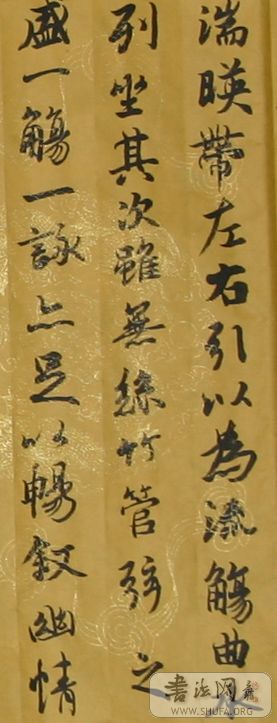 湍暎帶左右引以為流觴曲
列坐其次雖無絲竹管弦之
盛一觴一詠亦足以暢叙幽情
书法网
WWW.SHUFA.ORG